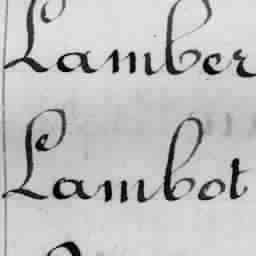 Lamber
Lambot